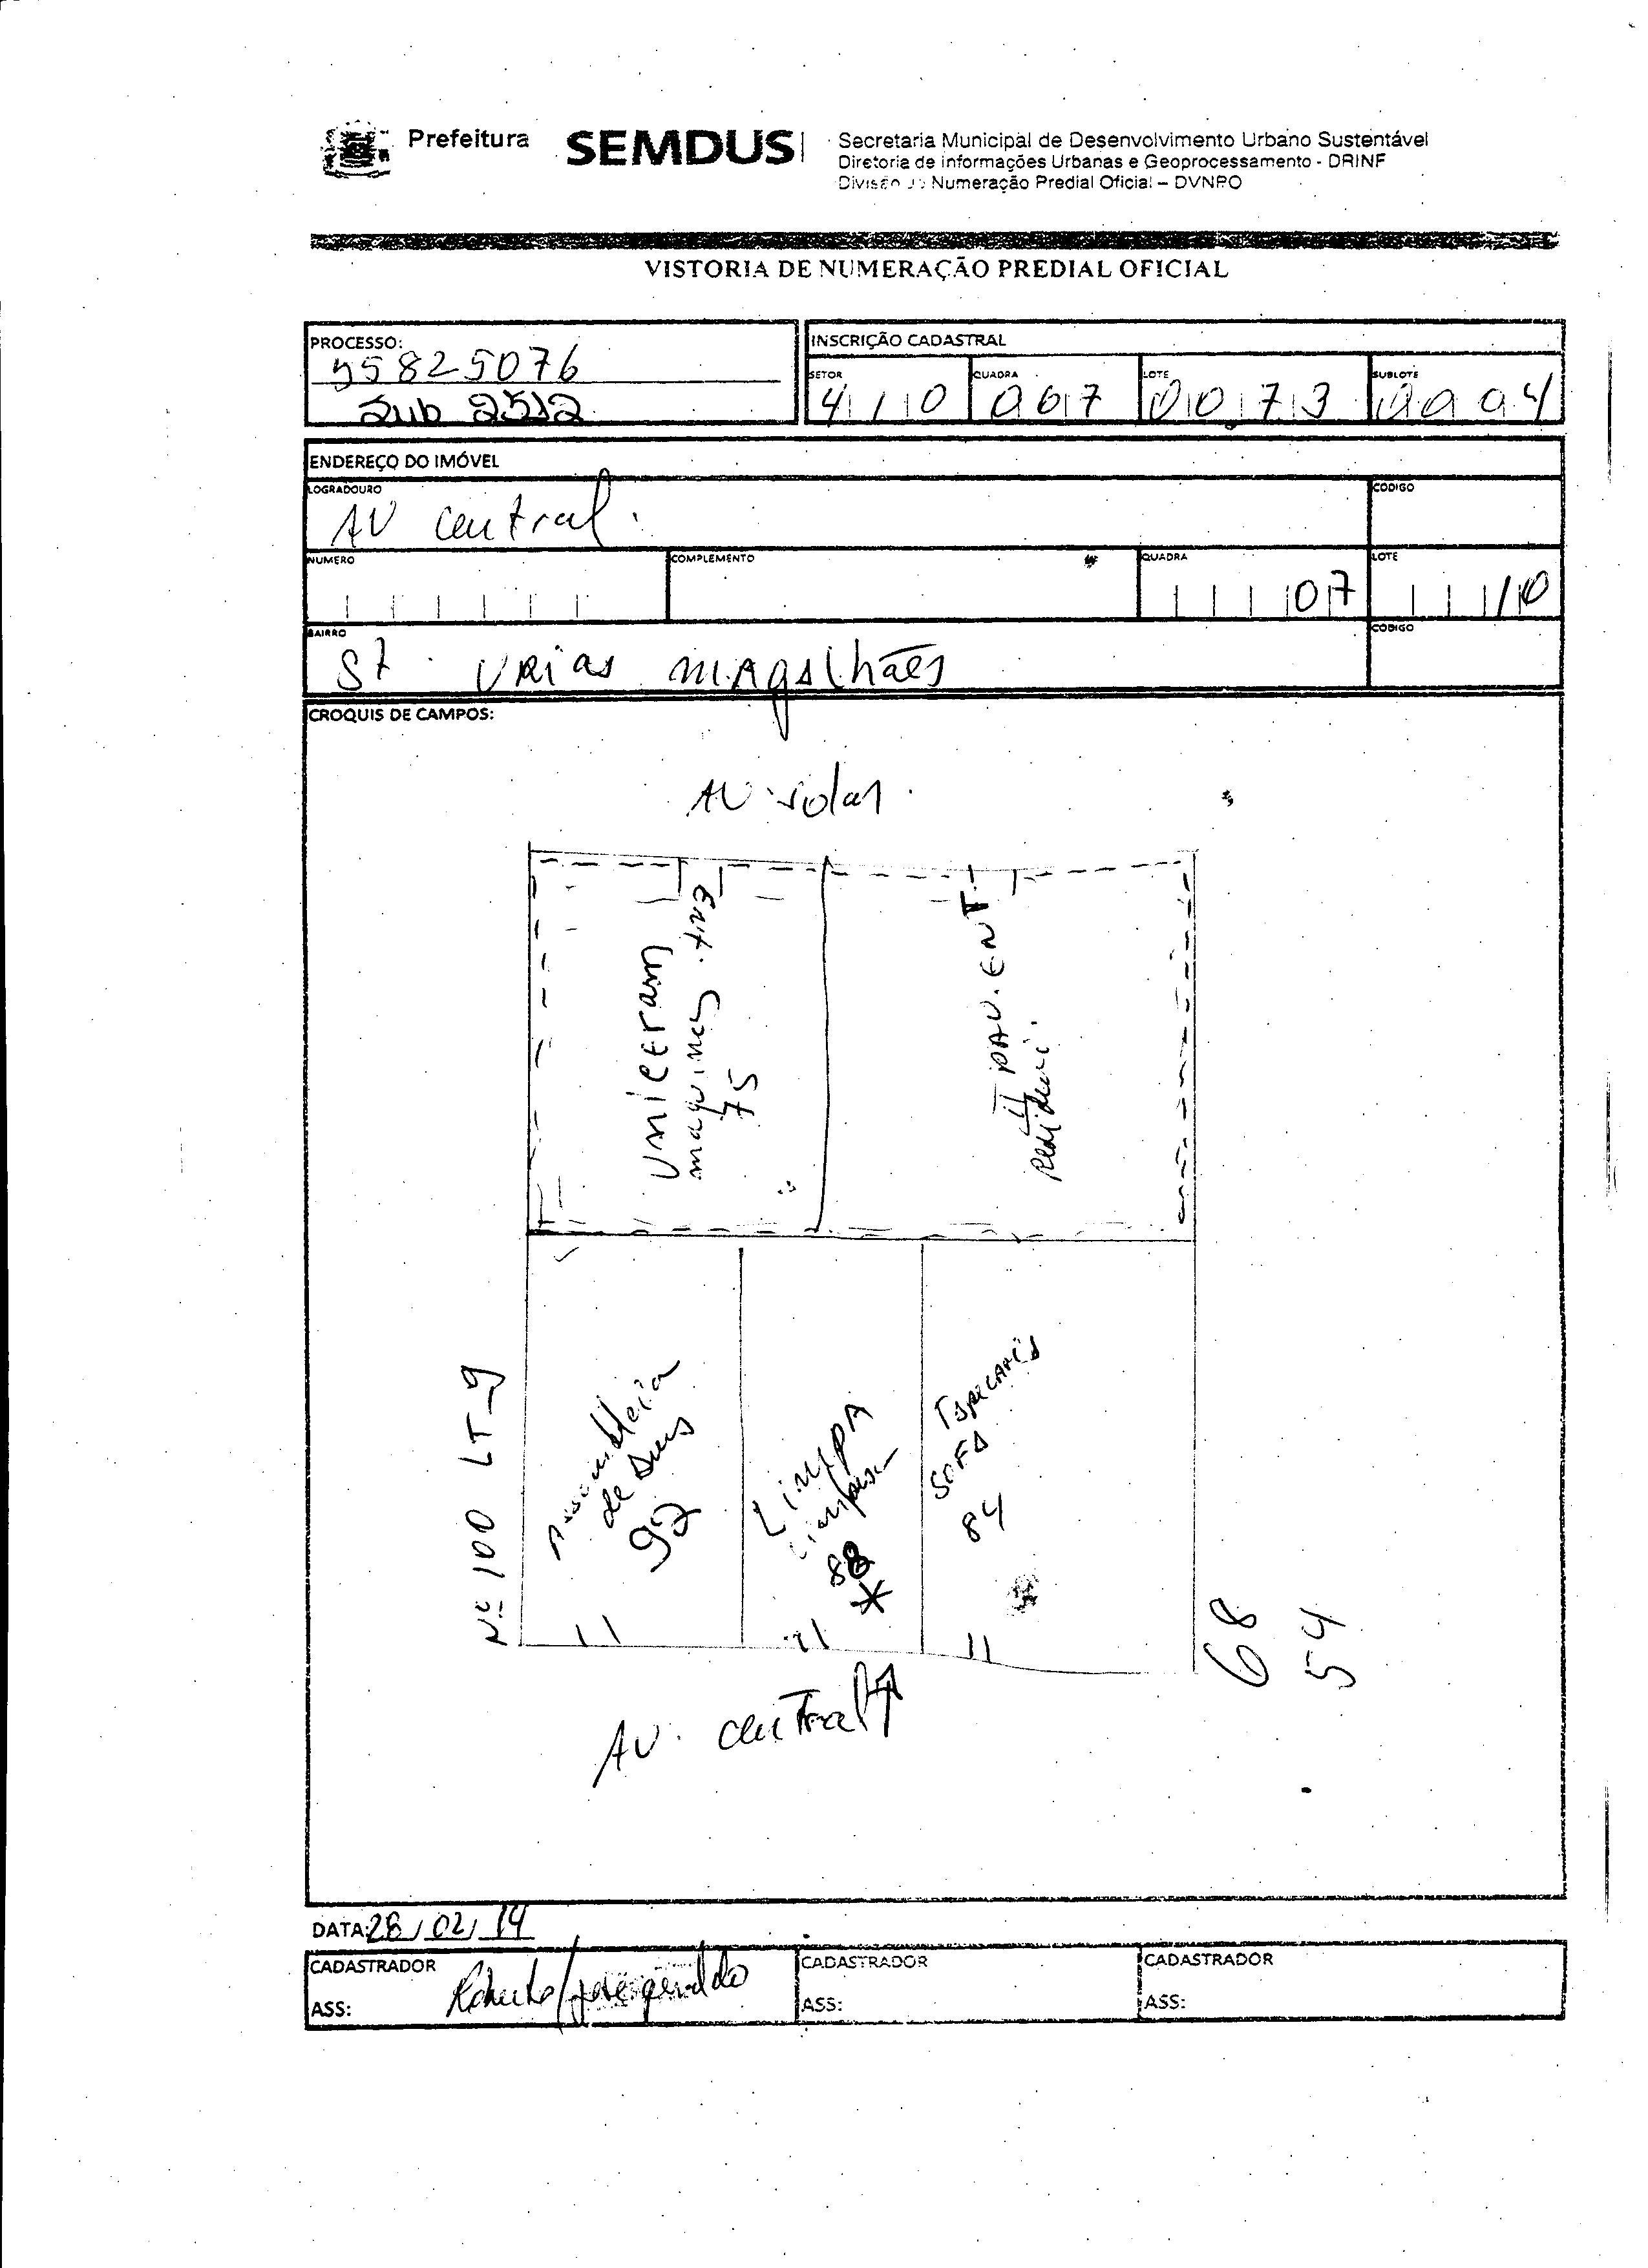 Prefeitura
SEMDUS
Secretaria Municipal de Desenvolvimento Urbano Sustentável
Diretoria de Informações Urbanas e Geoprocessamento - DRINF
Divisão de Numeração Predial Oficial – DVNPO
VISTORIA DE NUMERAÇÃO PREDIAL OFICIAL
PROCESSO:
55825076
Sub 2512
INSCRIÇÃO CADASTRAL
SETOR QUADRA LOTE SUBLOTE
410 067 0073 0004
ENDEREÇO DO IMÓVEL
LOGRADOURO
CÓDIGO
AV central.
NUMERO
COMPLEMENTO
QUADRA
LOTE
07
10
BAIRRO
CÓDIGO
St. URIAS MAgAlhães
CROQUIS DE CAMPOS:
AV. volar
UNICERAM
maquinas
75
II PAV. ENT.
Nº 100 LT_9
Assembleia
de Deus
92
LIMPA
88
*
SOFA
84
68
54
AV. central
DATA: 28/02/14
CADASTRADOR
ASS: Roberto/jose geraldo
CADASTRADOR
ASS:
CADASTRADOR
ASS: